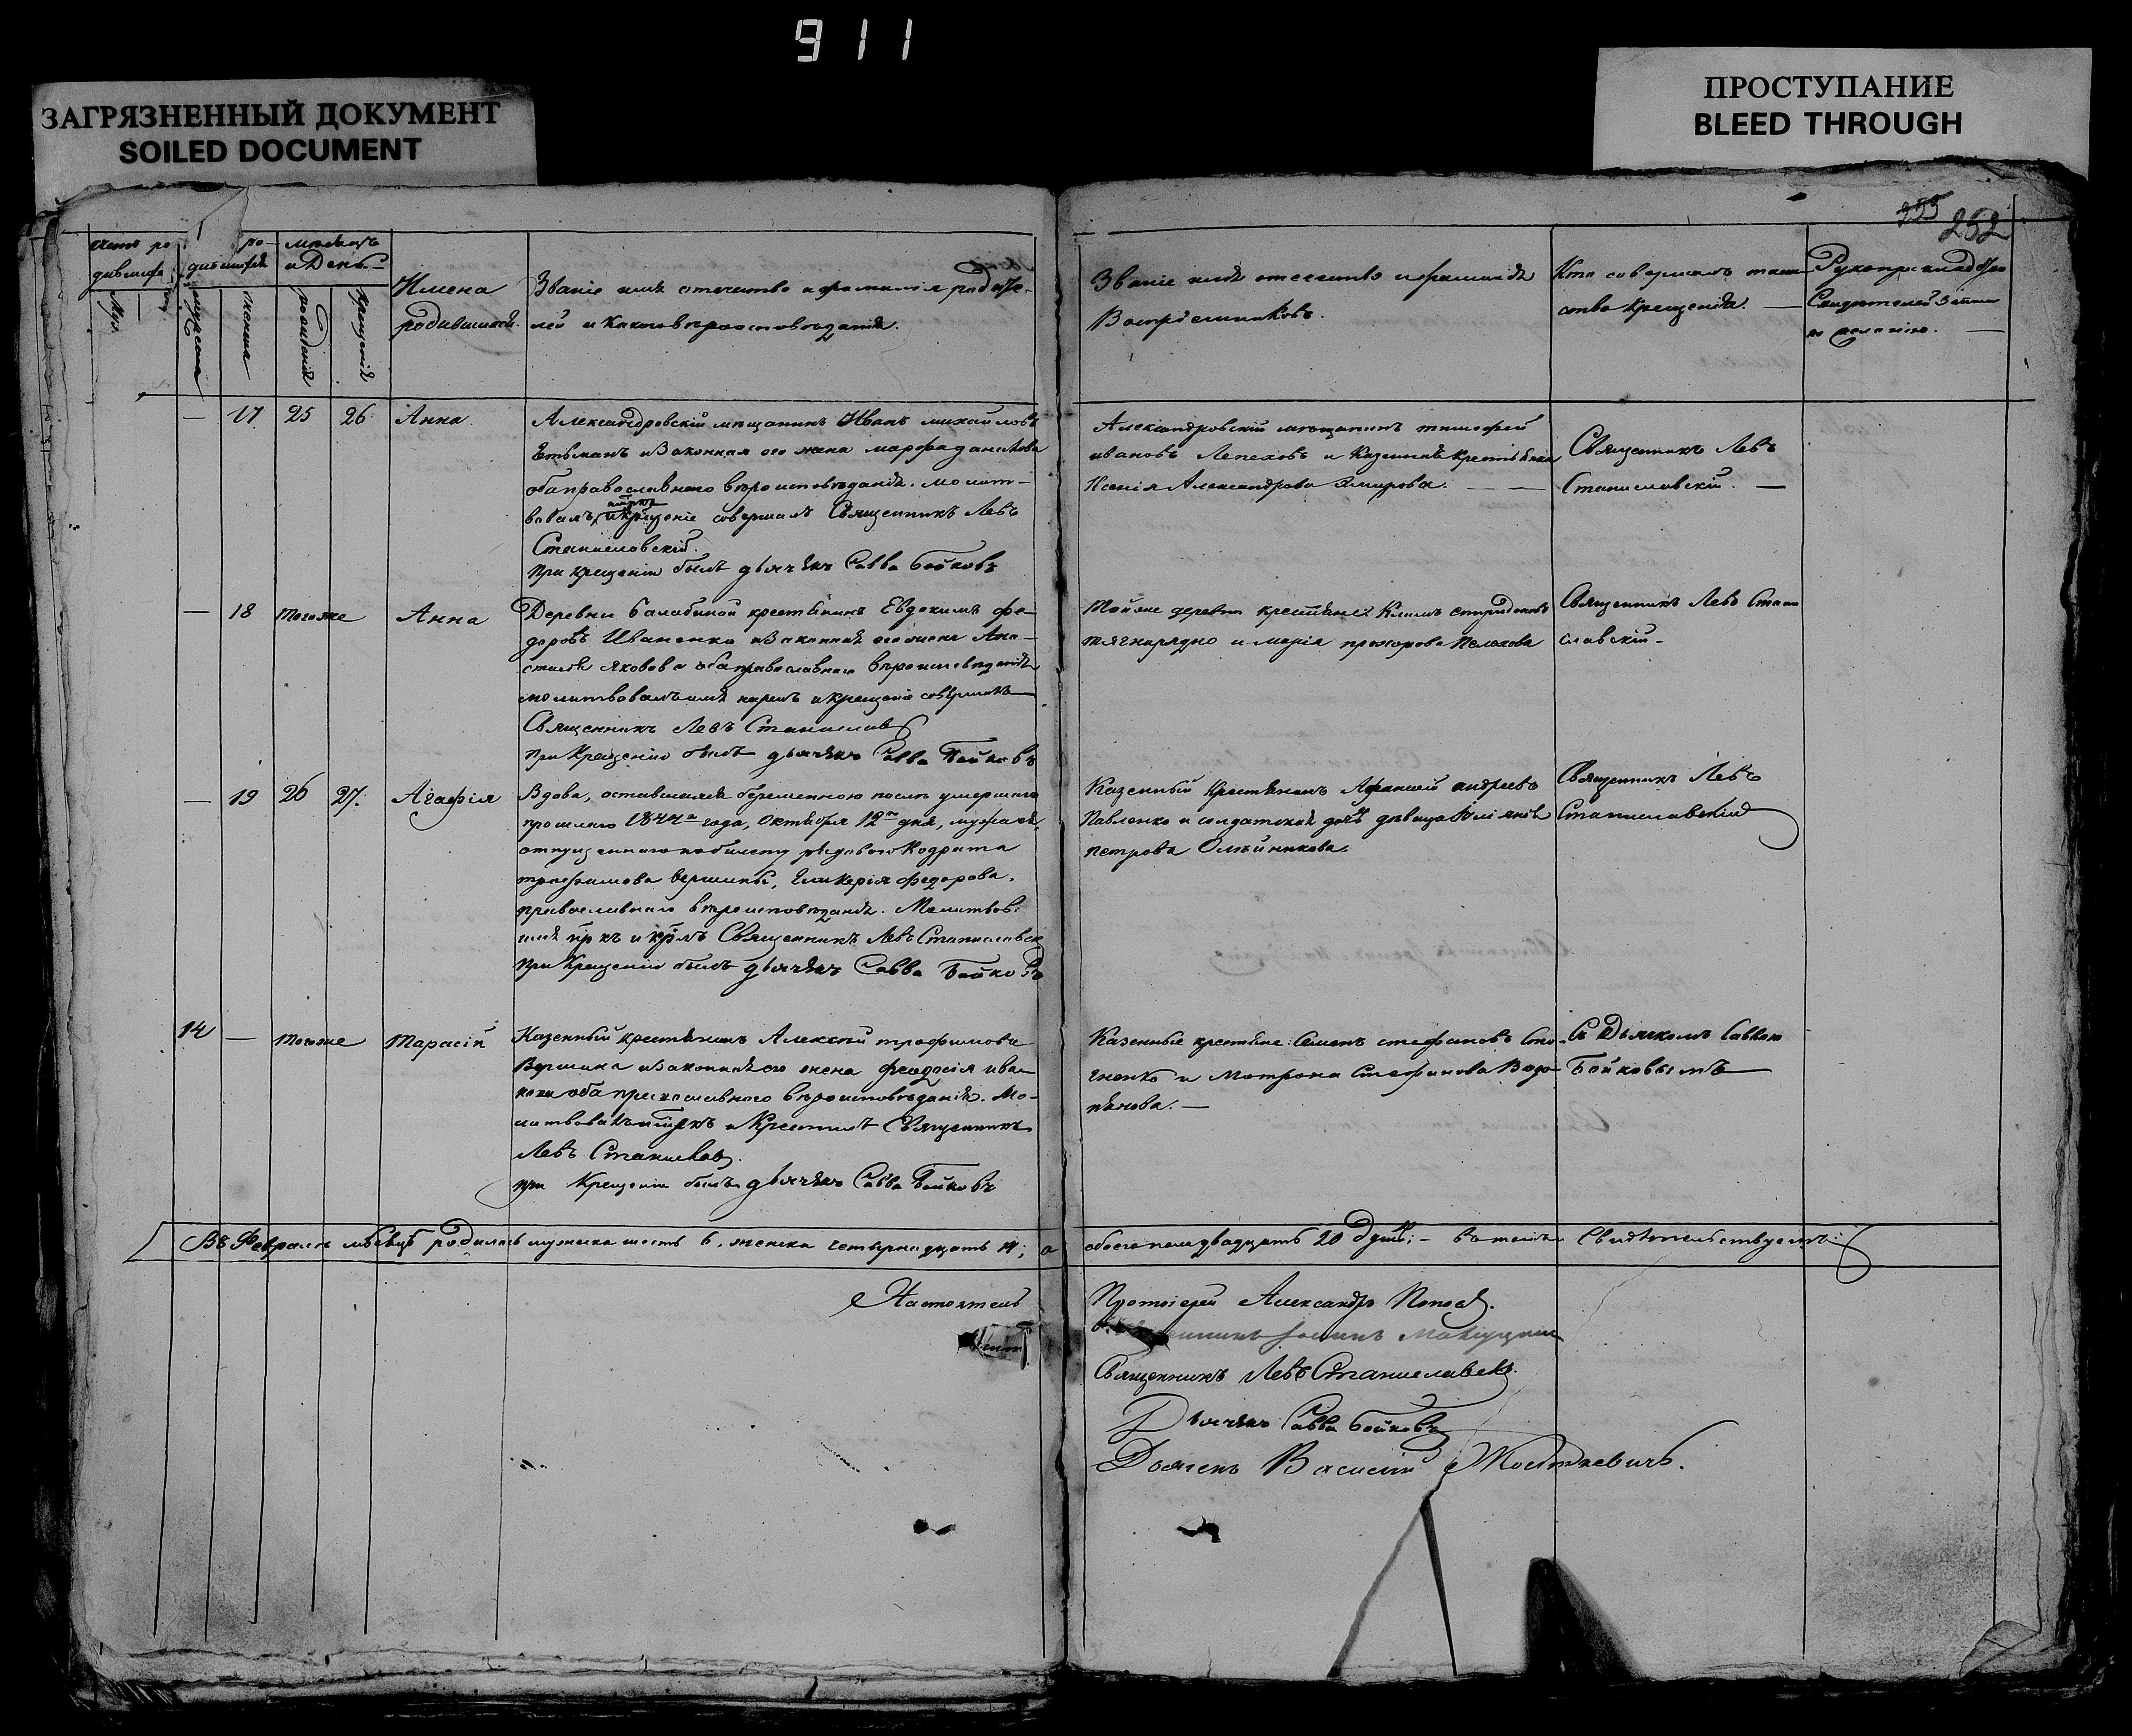 911
ЗАГРЯЗНЕННЫЙ ДОКУМЕНТ
SOILED DOCUMENT
ПРОСТУПАНИЕ
BLEED THROUGH
252
Имена
родившихся.
Званіе имя отечество и фамилія родите-
лей и какого вѣроисповѣданія.
Званіе имя отечество и фамилія
Воспріемниковъ.
Кто совершалъ таин-
ство крещенія. —
Рукоприкладство
Свидетелей записи
по желанію. —
— 17 25 26 Анна.
Александровскій мѣщанинъ Иванъ Михайловъ
Гетьманъ и Законная его жена Марфа
оба православнаго вѣроисповѣданія. Молит-
крещеніе совершалъ Священникъ Левъ
Станиславскій.
при крещеніи былъ дьячекъ Савва Бойковъ
Александровскій мѣщанинъ Тимофей
ивановъ Лепеховъ и Казенная крестьянка
Ксенія Александрова
Священникъ Левъ
Станиславскій. —
— 18 тогоже Анна
Деревни Балабиной крестьянинъ Евдокимъ Фе-
доровъ Иваненко и Законная его жена Ана-
стасія Яковлева оба православнаго вѣроисповѣданія
молитвовалъ имя нарекъ и крещеніе совершалъ
Священникъ Левъ Станислав
при Крещеніи былъ дьячекъ Савва Бойковъ
Тойже деревни крестьяне: Климъ
и Марія прохорова
Священникъ Левъ Стани
славскій –
— 19 26 27. Агафія
Вдова, оставшаяся беременною послѣ умершаго
прошлаго 1844го года, Октября 12го дня, мужа ея,
отпущеннаго по билету рядоваго Кодрата
трофимова Вершины, Гликерія Федорова,
православнаго вѣроисповѣданія. Молитвов.
имя нр къ и крлъ Священникъ Левъ Станиславск
При Крещеніи былъ дьячекъ Савва Бойковъ
Казенный Крестьянинъ Афанасій андреевъ
Павленко и солдатская дочь дѣвица
петрова Олѣйникова.
Священникъ Левъ
Станиславскій
14 — тогоже Тарасій
Казенный крестьянинъ Алексѣй трофимовъ
Вершина и Законная его жена Феодосія ива-
нова оба православнаго вѣроисповѣданія. Мо-
литвовалъ и Крестилъ Священникъ
Левъ Станислав.
при Крещеніи былъ дьячекъ Савва Бойковъ
Казенные крестьяне: Семенъ стефановъ
и Матрона Стефанова Водо-
пьянова. —
Съ Дьячкомъ Саввою
Бойковымъ
Въ Февралѣ мѣсяцѣ родилось мужеска шесть 6, женска четырнадцать 14, а
обоего пола двадцать 20 душъ; – въ томъ Свидѣтельствуемъ:
Настоятель
Протоіерей Александръ Попов.
Священникъ Левъ Станиславск
Дьячекъ Савва Бойковъ
Дьячекъ Василій